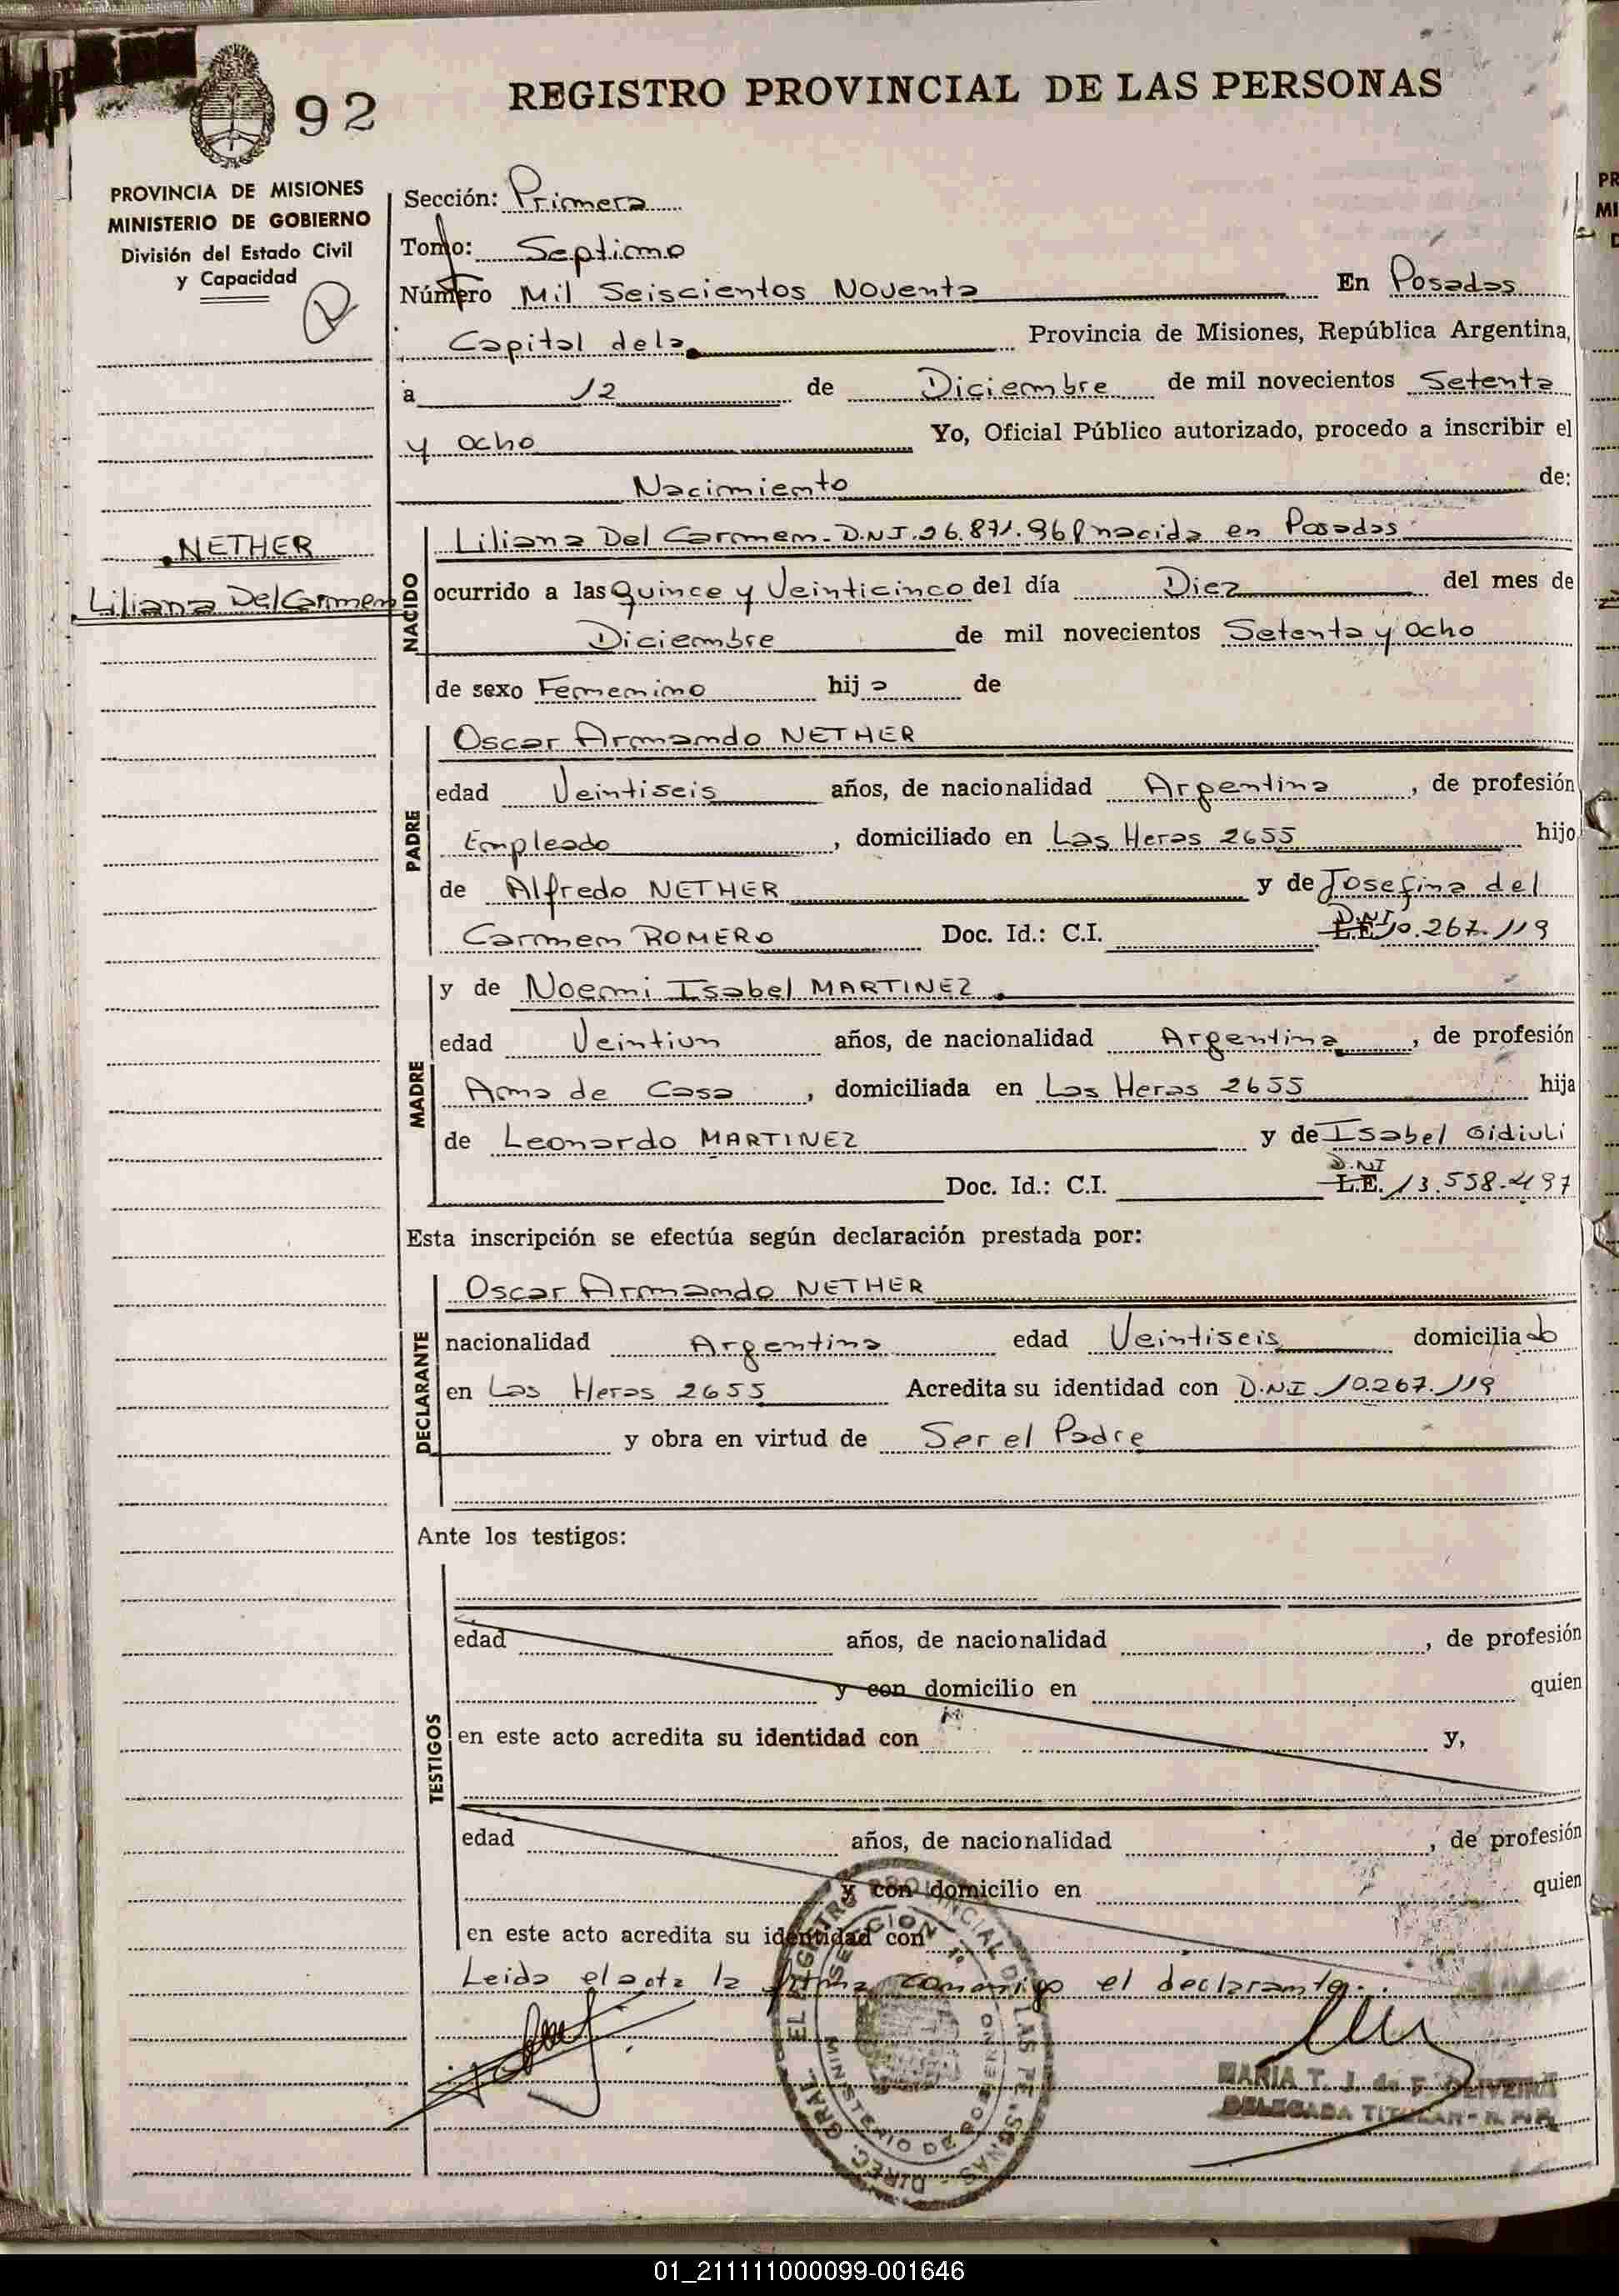 92
REGISTRO PROVINCIAL DE LAS PERSONAS
PROVINCIA DE MISIONES
MINISTERIO DE GOBIERNO
División del Estado Civil
y Capacidad
Sección: Primera
Tomo: Septimo
Número Mil Seiscientos Noventa En Posadas
Capital dela Provincia de Misiones, República Argentina,
a 12 de Diciembre de mil novecientos Setenta
y ocho Yo, Oficial Público autorizado, procedo a inscribir el
Nacimiento de:
NETHER
Liliana Del Carmen
NACIDO
Liliana Del Carmen - D.N.I. 26.871.968 nacida en Posadas
ocurrido a las Quince y Veinticinco del día Diez del mes de
Diciembre de mil novecientos Setenta y ocho
de sexo Femenino hija de
PADRE
Oscar Armando NETHER
edad Veintiseis años, de nacionalidad Argentina, de profesión
Empleado, domiciliado en Las Heras 2655 hijo
de Alfredo NETHER y de Josefina del
Carmen ROMERO Doc. Id.: C.I. L.E. D.N.I. 10.267.119
MADRE
y de Noemi Isabel MARTINEZ
edad Veintiun años, de nacionalidad Argentina, de profesión
Ama de Casa, domiciliada en Las Heras 2655 hija
de Leonardo MARTINEZ y de Isabel Gidiuli
Doc. Id.: C.I. L.E. D.NI 13.558.497
Esta inscripción se efectúa según declaración prestada por:
DECLARANTE
Oscar Armando NETHER
nacionalidad Argentina edad Veintiseis domiciliado
en Las Heras 2655 Acredita su identidad con D.N.I. 10.267.119
y obra en virtud de Ser el Padre
Ante los testigos:
TESTIGOS
edad años, de nacionalidad , de profesión
y con domicilio en quien
en este acto acredita su identidad con y,
edad años, de nacionalidad , de profesión
y con domicilio en quien
en este acto acredita su identidad con
Leida el acta la firma conmigo el declarante.
DIREC. GRAL. EL REGISTRO PROVINCIAL DE LAS PERSONAS
SECCION 1ª
MINISTERIO DE GOBIERNO
MARIA T. J. de F. OLIVEIRA
DELEGADA TITULAR - R. P. P.
01_211111000099-001646